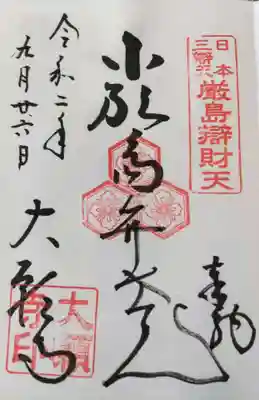 日本
厳島辯財天
奉拝
厳島弁才天
令和二年
九月廿六日
大願寺
大願
寺印